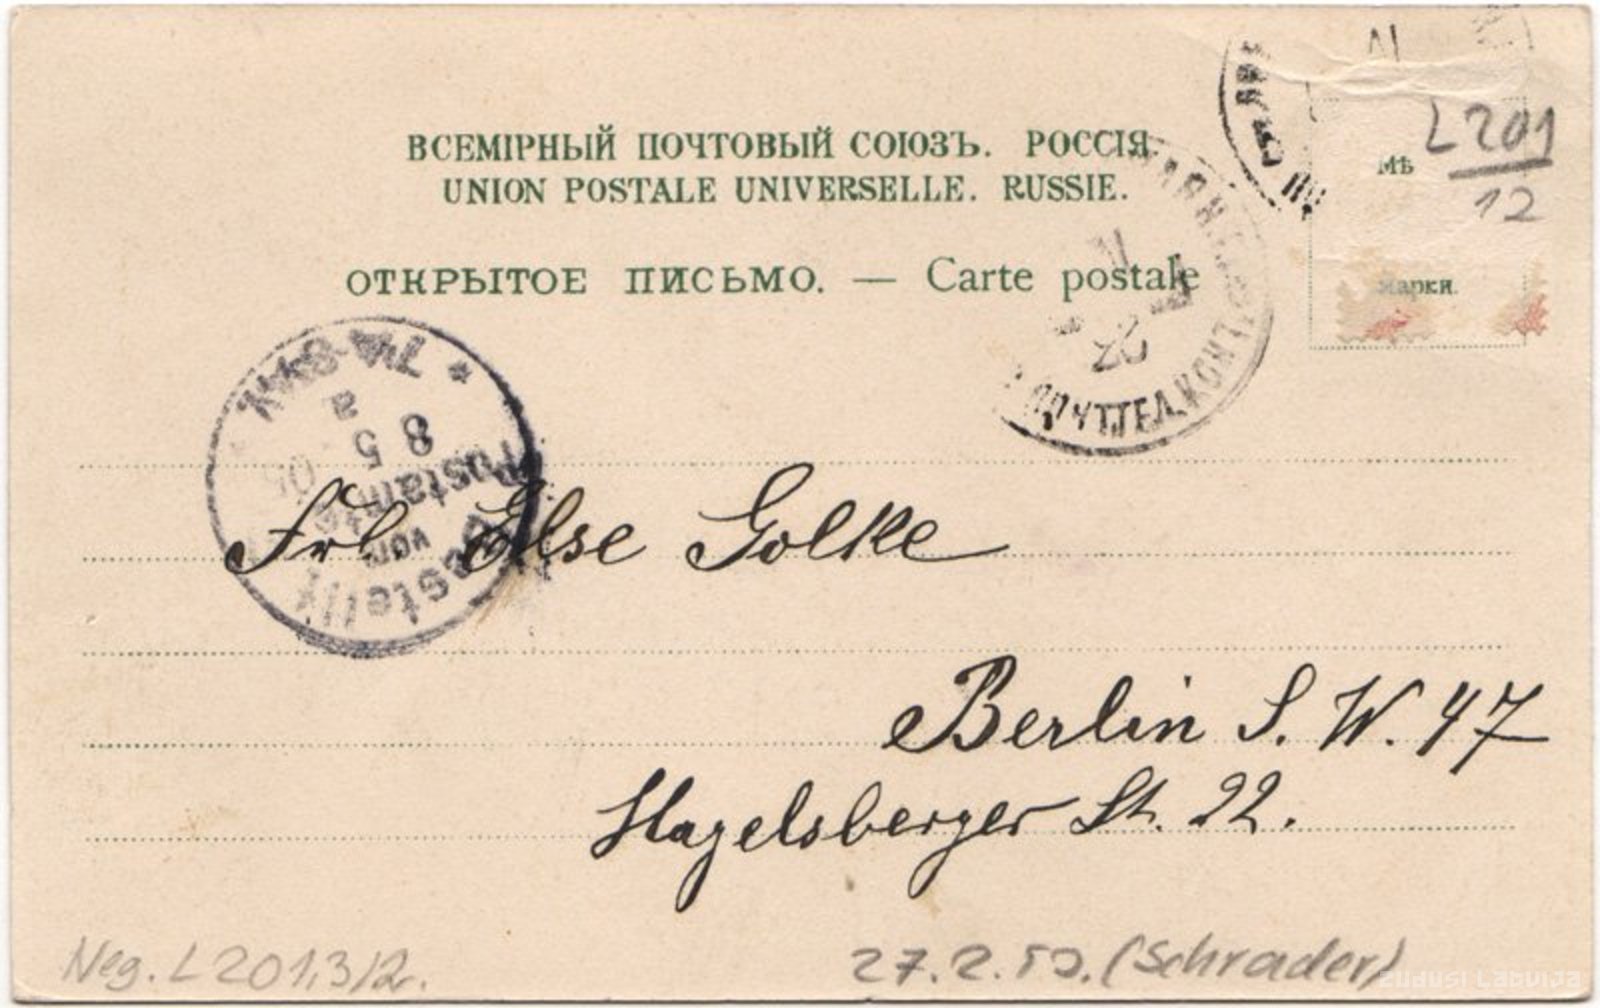 ВСЕМІРНЫЙ ПОЧТОВЫЙ СОЮЗЪ. РОССІЯ.
UNION POSTALE UNIVERSELLE. RUSSIE.
ОТКРЫТОЕ ПИСЬМО. — Carte postale
L 201
12
Мѣ
марки.
ПОЧТ.ТЕЛ.КОНТ.
7¼-8¼N.
a
8 5
05
Postamte
vom
Bestellt
Frl. Else Golke
Berlin S. W. 47
Hagelsberger St. 22.
Neg. L 201.3/2.
27.2.50. (Schrader)
zudusi Latvija